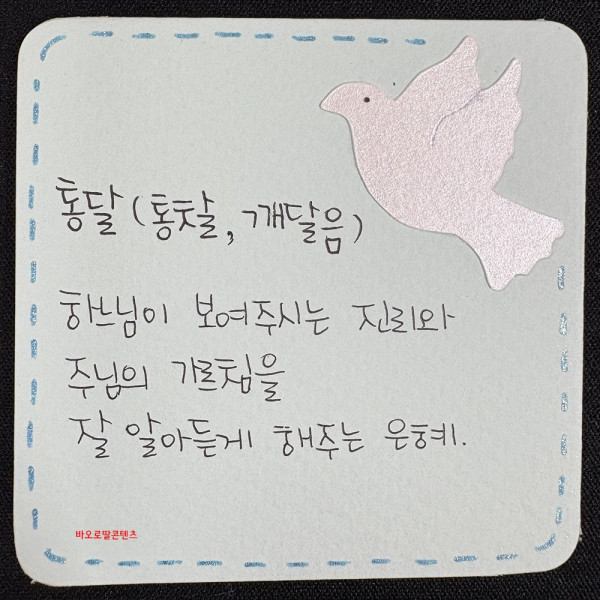 통달 (통찰, 깨달음)
하느님이 보여주시는 진리와
주님의 가르침을
잘 알아듣게 해주는 은혜.
바오로딸콘텐츠